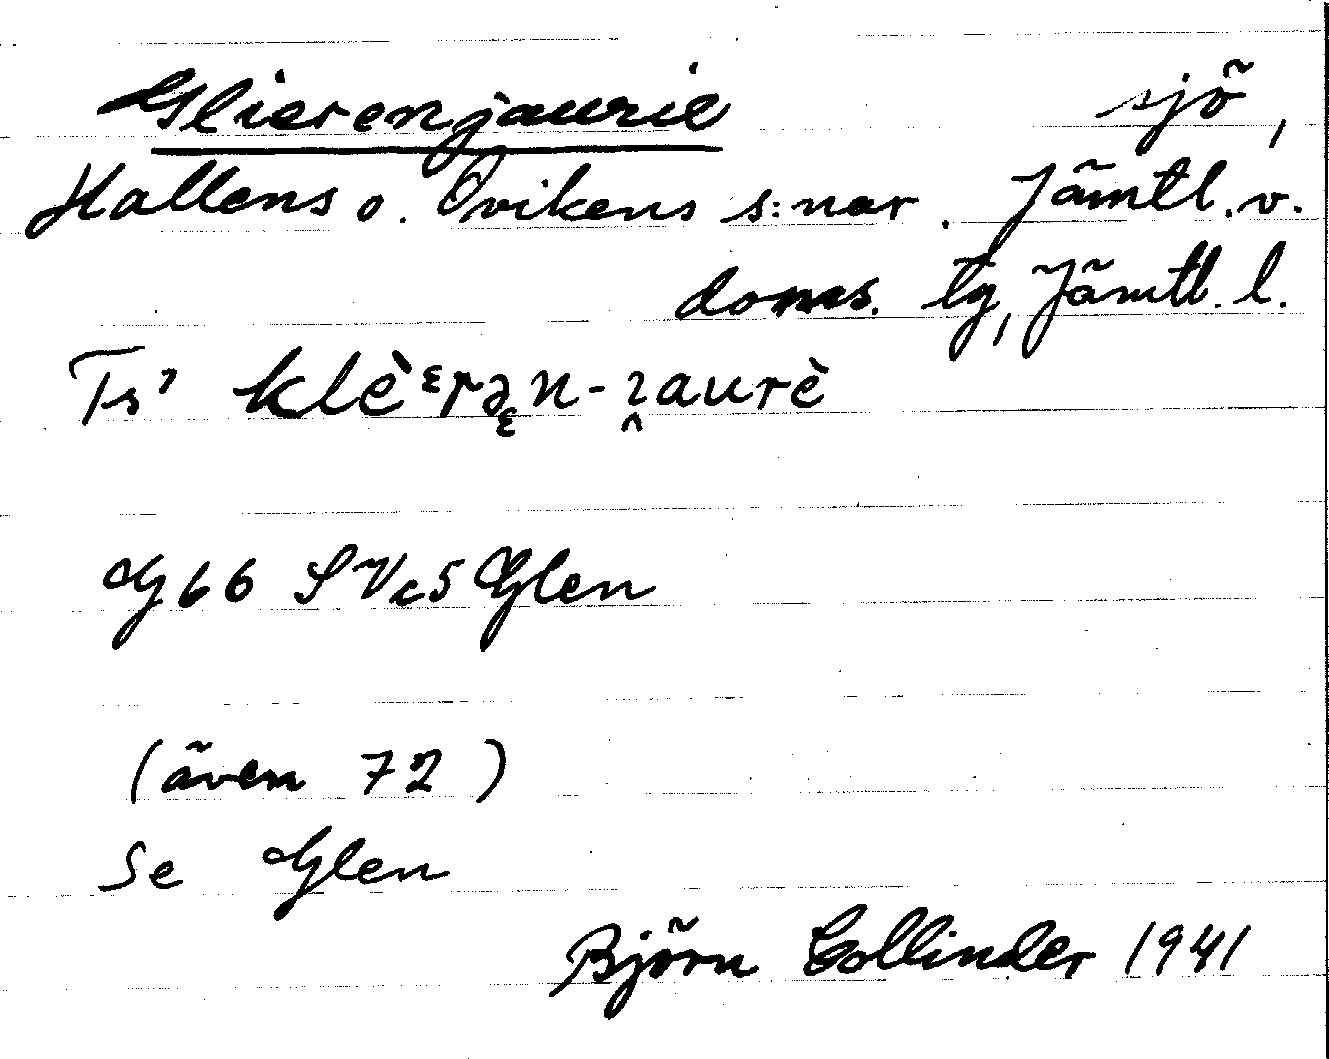 Glierenjaurie sjö,
Hallens o. Ovikens s:nar. Jämtl. v.
doms. tg, Jämtl. l.
Ts' klè ᵋrə̨n-ʅaurè
G 66 SVc5 Glen
(även 72)
Se Glen
Björn Collinder 1941